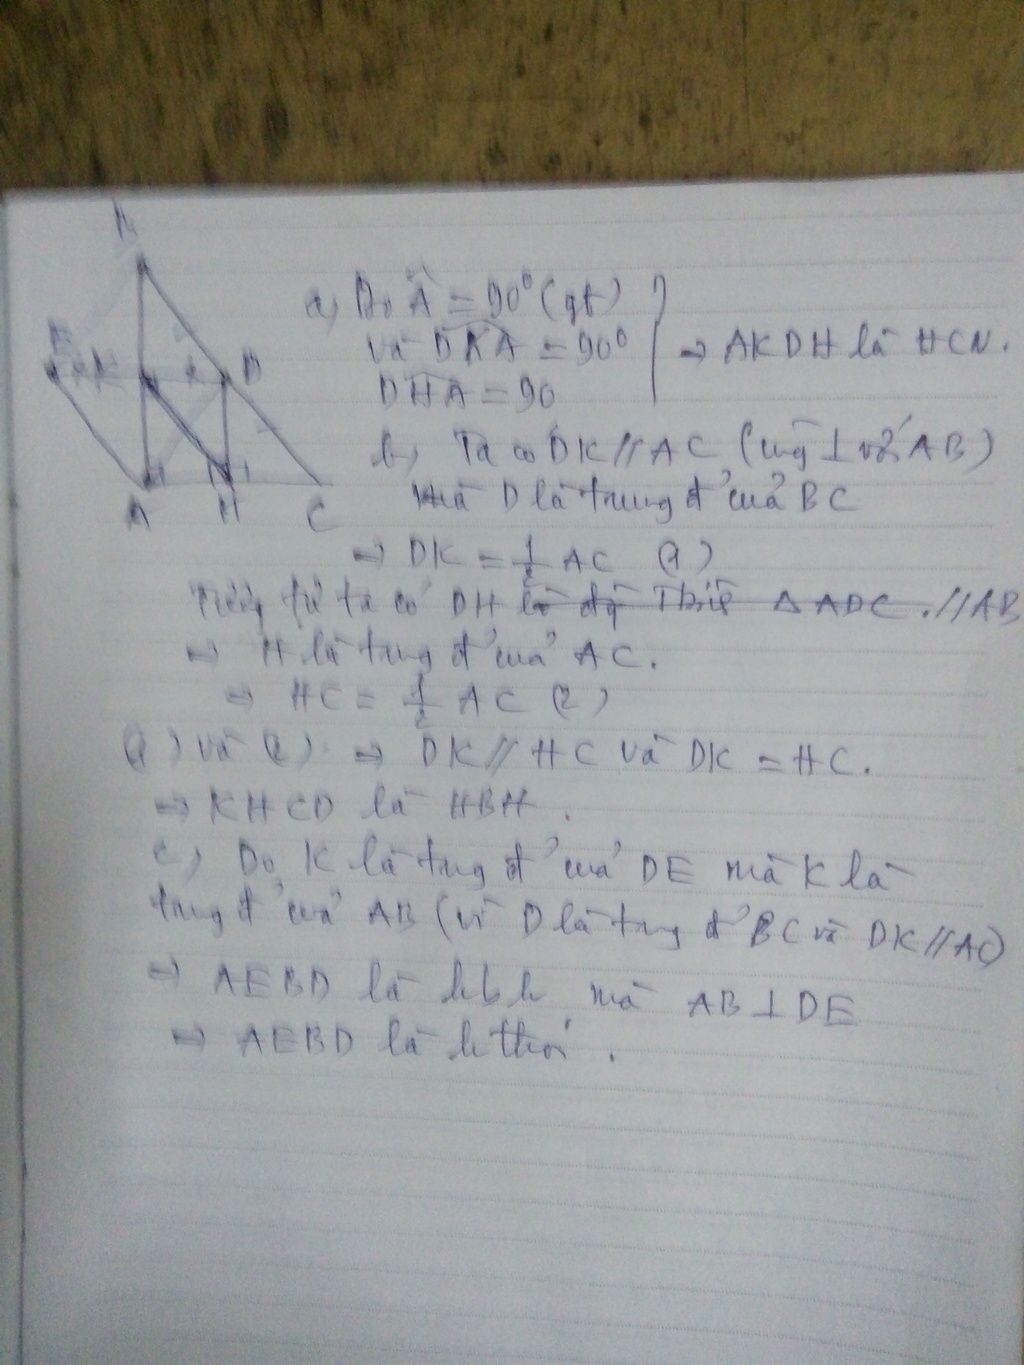 B
E K D
A H C
a) Do Â = 90° (gt)
và DKA = 90°
DHA = 90
⇒ AKDH là HCN.
b) Ta có DK // AC (cùg ⊥ với AB)
mà D là trung đ' của BC
⇒ DK = 1/2 AC (1)
Tương tự ta có DH // AB
⇒ H là tung đ' của AC.
⇒ HC = 1/2 AC (2)
(1) và (2) ⇒ DK // HC và DK = HC.
⇒ KHCD là HBH.
c) Do K là tng đ' của DE mà K là
tung đ' của AB (vì D là tung đ' BC và DK // AC)
⇒ AEBD là hbh mà AB ⊥ DE
⇒ AEBD là h thoi.